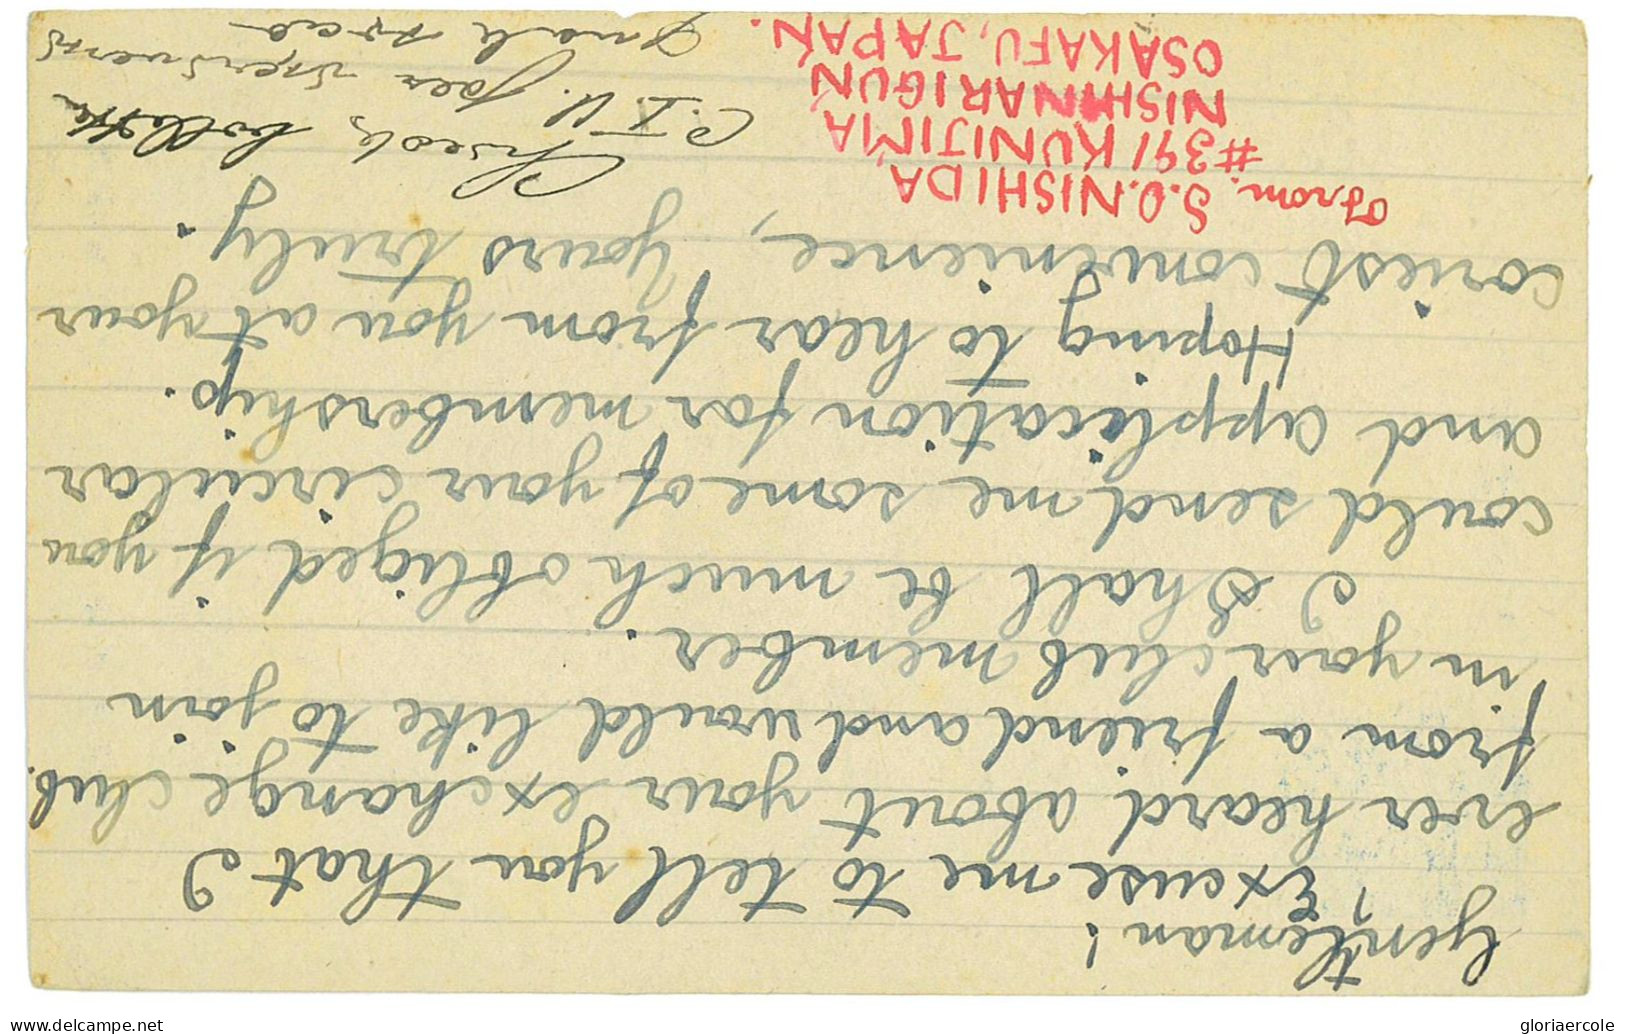 Gentleman!
Excuse me to tell you that I
ever heard about your exchange club.
from a friend and would like to join
in your club member.
I shall be much obliged if you
could send me some of your circular
and application for membership.
Hoping to hear from you at your
coriest convenience, yours truly.
From. S.O.NISHIDA
#391 KUNIJIMA
NISHINARIGUN
OSAKAFU, JAPAN.
C.I.V.
gloriaercole